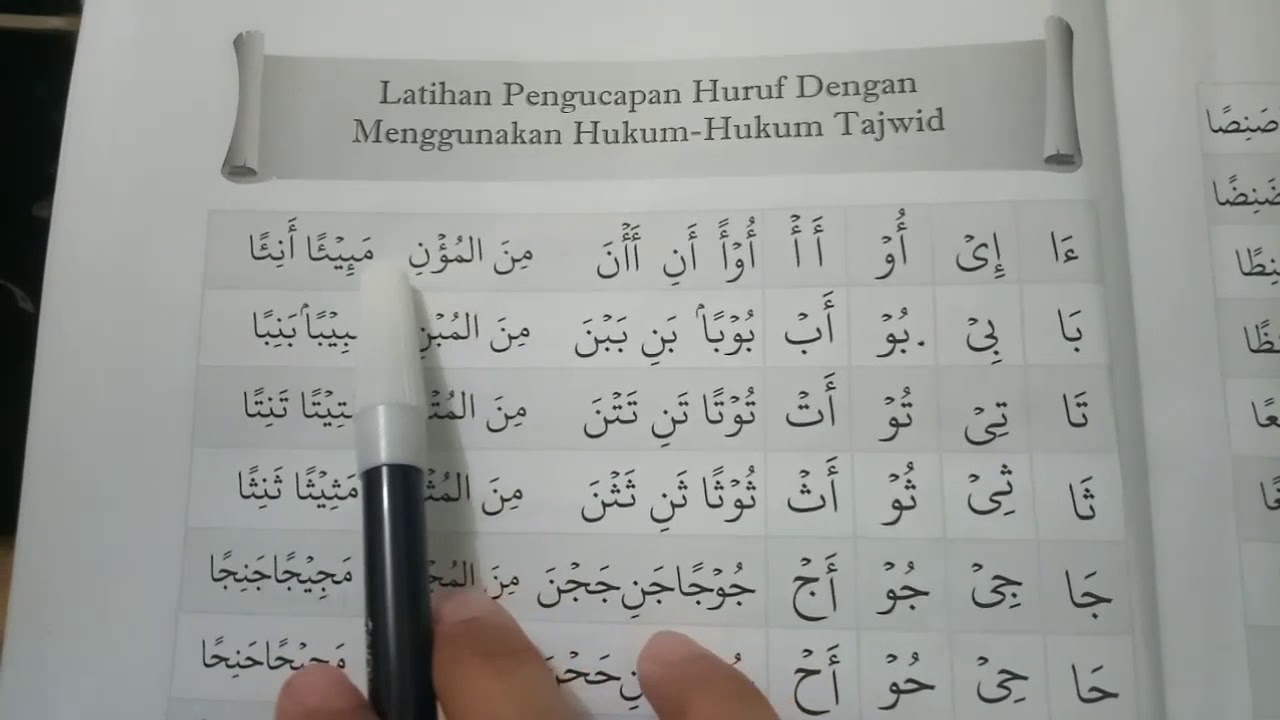 Latihan Pengucapan Huruf Dengan
Menggunakan Hukum-Hukum Tajwid
ءَا إِىْ أُوْ أَ أْ أُوْأً أَنِ أَأْنَ مِنَ المُؤْنِ مَئِيْئًا أَنِئًا
بَا بِىْ بُوْ أَبْ بُوْبًا بَنِ بَبْنَ مِنَ المُبْنِ بَنِبًا
تَا تِىْ تُوْ أَتْ تُوْتًا تَنِ تَتْنَ مِنَ تَنِتًا
ثَا ثِىْ ثُوْ أَثْ ثُوْثًا ثَنِ ثَثْنَ مِنَ مَثِيْثًا ثَنِثًا
جَا جِىْ جُوْ أَجْ جُوْجًا جَنِ جَجْنَ مِنَ مَجِيْجًا جَنِجًا
حَا حِىْ حُوْ أَحْ حَنِحًا
صَنِصًا
ضَنِضًا